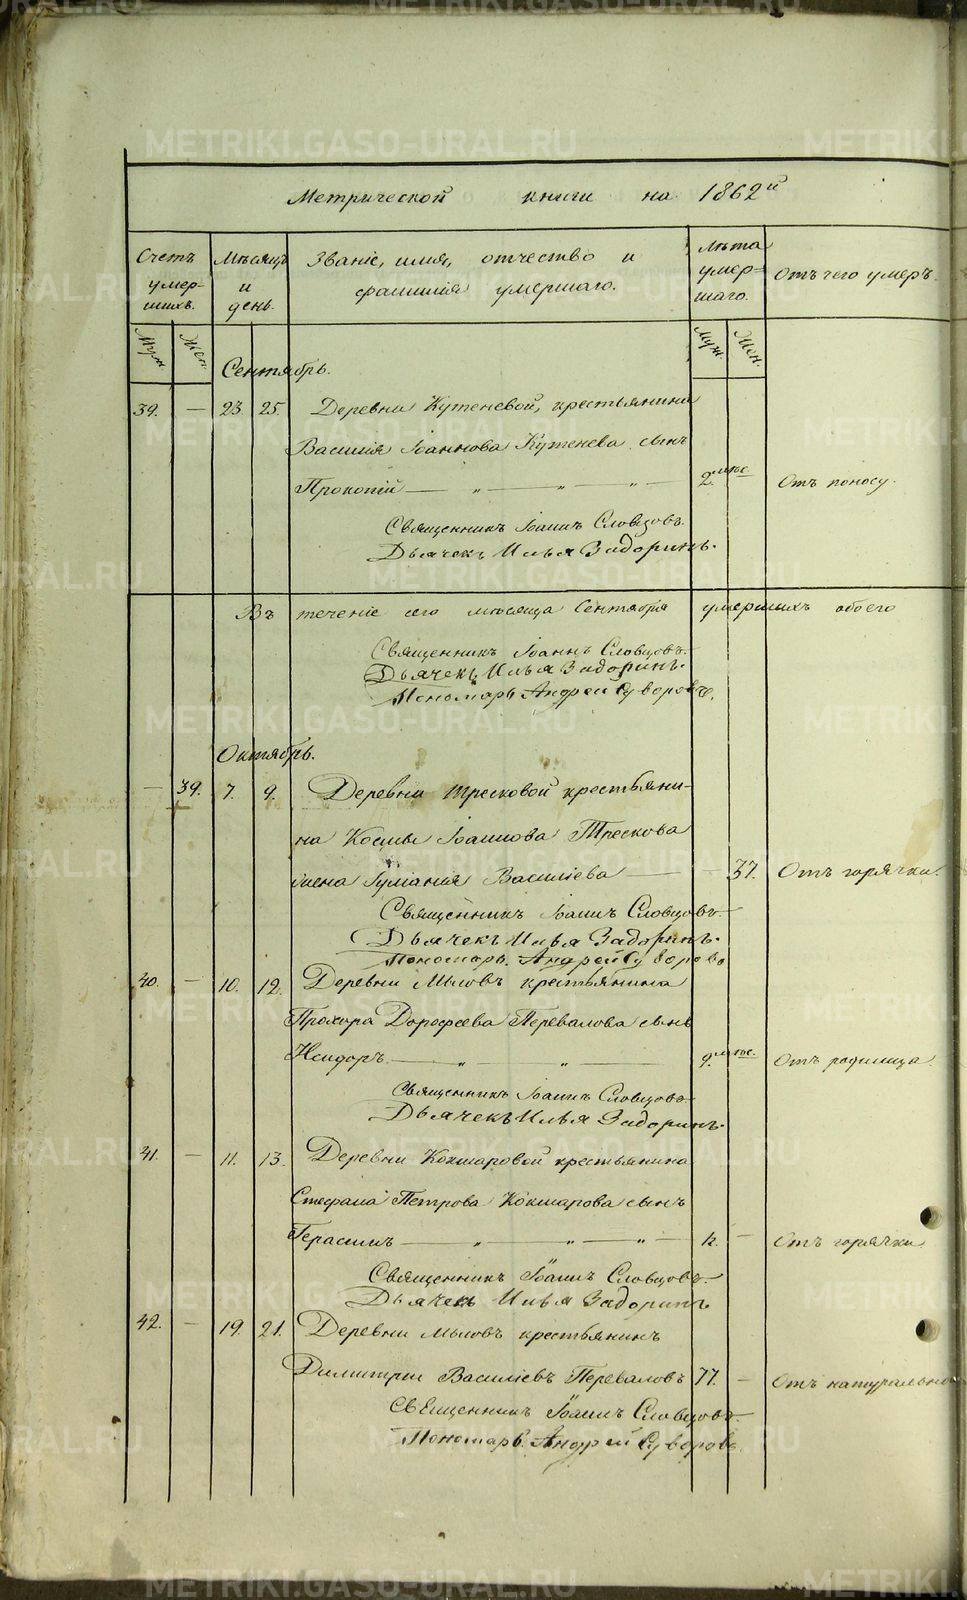 Метрической книги на 1862й
Счетъ умер- шихъ.
Мѣсяцъ и день.
Званіе, имя, отчество и фамилія умершаго.
Лѣта умер- шаго.
Отъ чего умеръ.
Муж. Жен.
Муж. Жен.
Сентябрь.
39. — 23. 25. Деревни Кутеневой, крестьянина
Василія Іоаннова Кутенева сынъ
Прокопій — „ — „ — „ — 2. мѣс. Отъ поносу.
Священникъ Іоаннъ Словцовъ.
Дьячекъ Илья Задоринъ.
Въ теченіе сего мѣсяца Сентября умершихъ обоего
Священникъ Іоаннъ Словцовъ.
Дьячекъ Илья Задоринъ.
Пономарь Андрей Суворовъ.
Октябрь.
— 39. 7. 9. Деревни Тресковой крестьяни-
на Космы Іоаннова Трескова
жена Іуліанія Василіева — — 37. Отъ горячки.
Священникъ Іоаннъ Словцовъ.
Дьячекъ Илья Задоринъ.
Пономарь Андрей Суворовъ
40. — 10. 12. Деревни Мыловъ крестьянина
Прохора Дорофеева Перевалова сынъ
Исидоръ — „ „ — 9. мѣс. Отъ родимца.
Священникъ Іоаннъ Словцовъ
Дьячекъ Илья Задоринъ.
41. — 11. 13. Деревни Кокшаровой крестьянина
Стефана Петрова Кокшарова сынъ
Герасимъ — „ — „ — „ — — Отъ горячки
Священникъ Іоаннъ Словцовъ.
Дьячекъ Илья Задоринъ
42. — 19. 21. Деревни Мыловъ крестьянинъ
Димитрій Василіевъ Переваловъ 77. — Отъ натурально
Священникъ Іоаннъ Словцовъ.
Пономарь Андрей Суворовъ.
METRIKI.GASO-URAL.RU